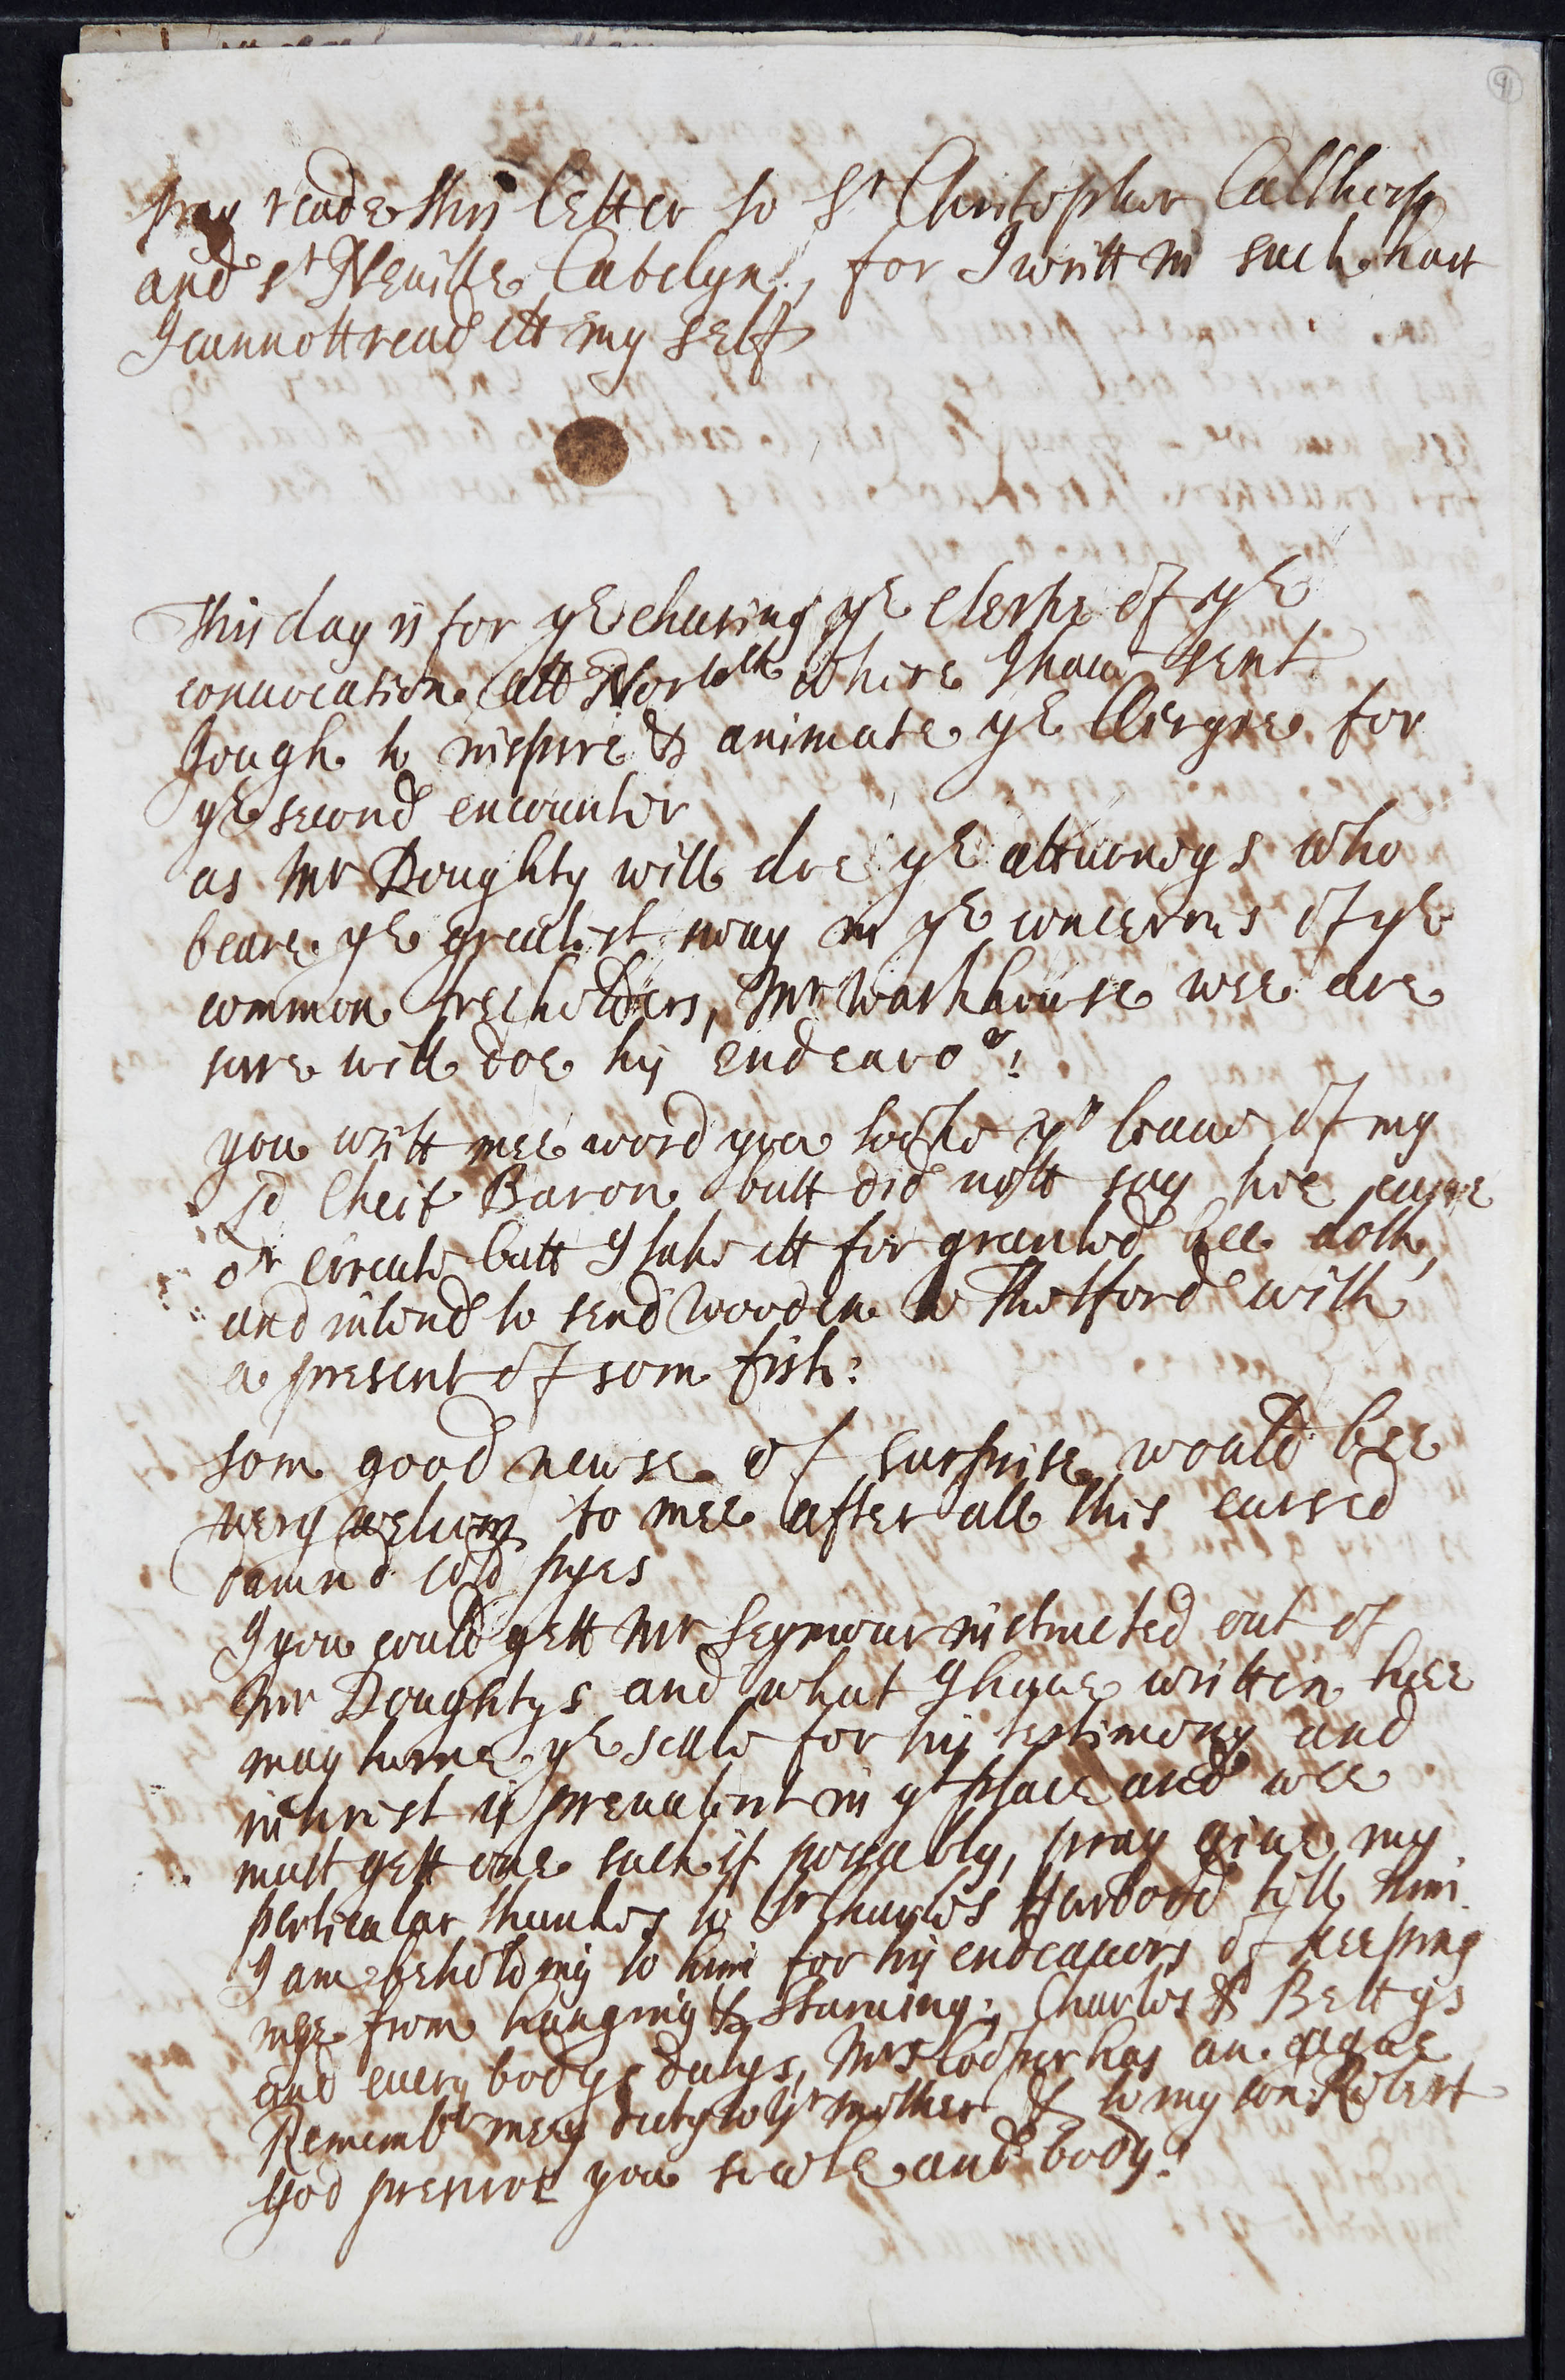 91
pray reade this letter to Sr Christopher Calthorp
and Sr Neuille Catelyn, for I writt in such hast
I cannott read itt my self
This day is for ye chusing ye clerke of ye
conuocation att Norwch where I haue sent
Gough to inspire & animate ye Clergie for
ye second encounter
as Mr Doughty will doe ye atturneys who
beare ye greatest sway in ye concernes of ye
common freeholders, Mr Warkhouse wee are
sure will doe his endeavor:
you writt mee word you tooke yr leaue of my
Ld Cheif Baron butt did nott say hee
or circute butt I take itt for granted hee doth,
and intend to send Wooden to Thetford with
a present of som fish:
som good newse of surprise would bee
very welcom to mee after all this cursed
damnd cold pyes
I you could gett Mr Seymour instructed out of
Mr Doughtys and what I haue written hee
may turne ye scale for his testimony and
intrest is preualent in yt place and wee
must gett one such if possably, pray giue my
perticular thankes to Sr Charles Harbord tell him
I am beholding to him for his endeauors of keeping
mee from hanging & staruing: Charles & Bettys
and euery bodys dutys, Mrs Cooper has an ague
Remembr mery duty to yr mother & to my son Robert
God preserve you soule and body: